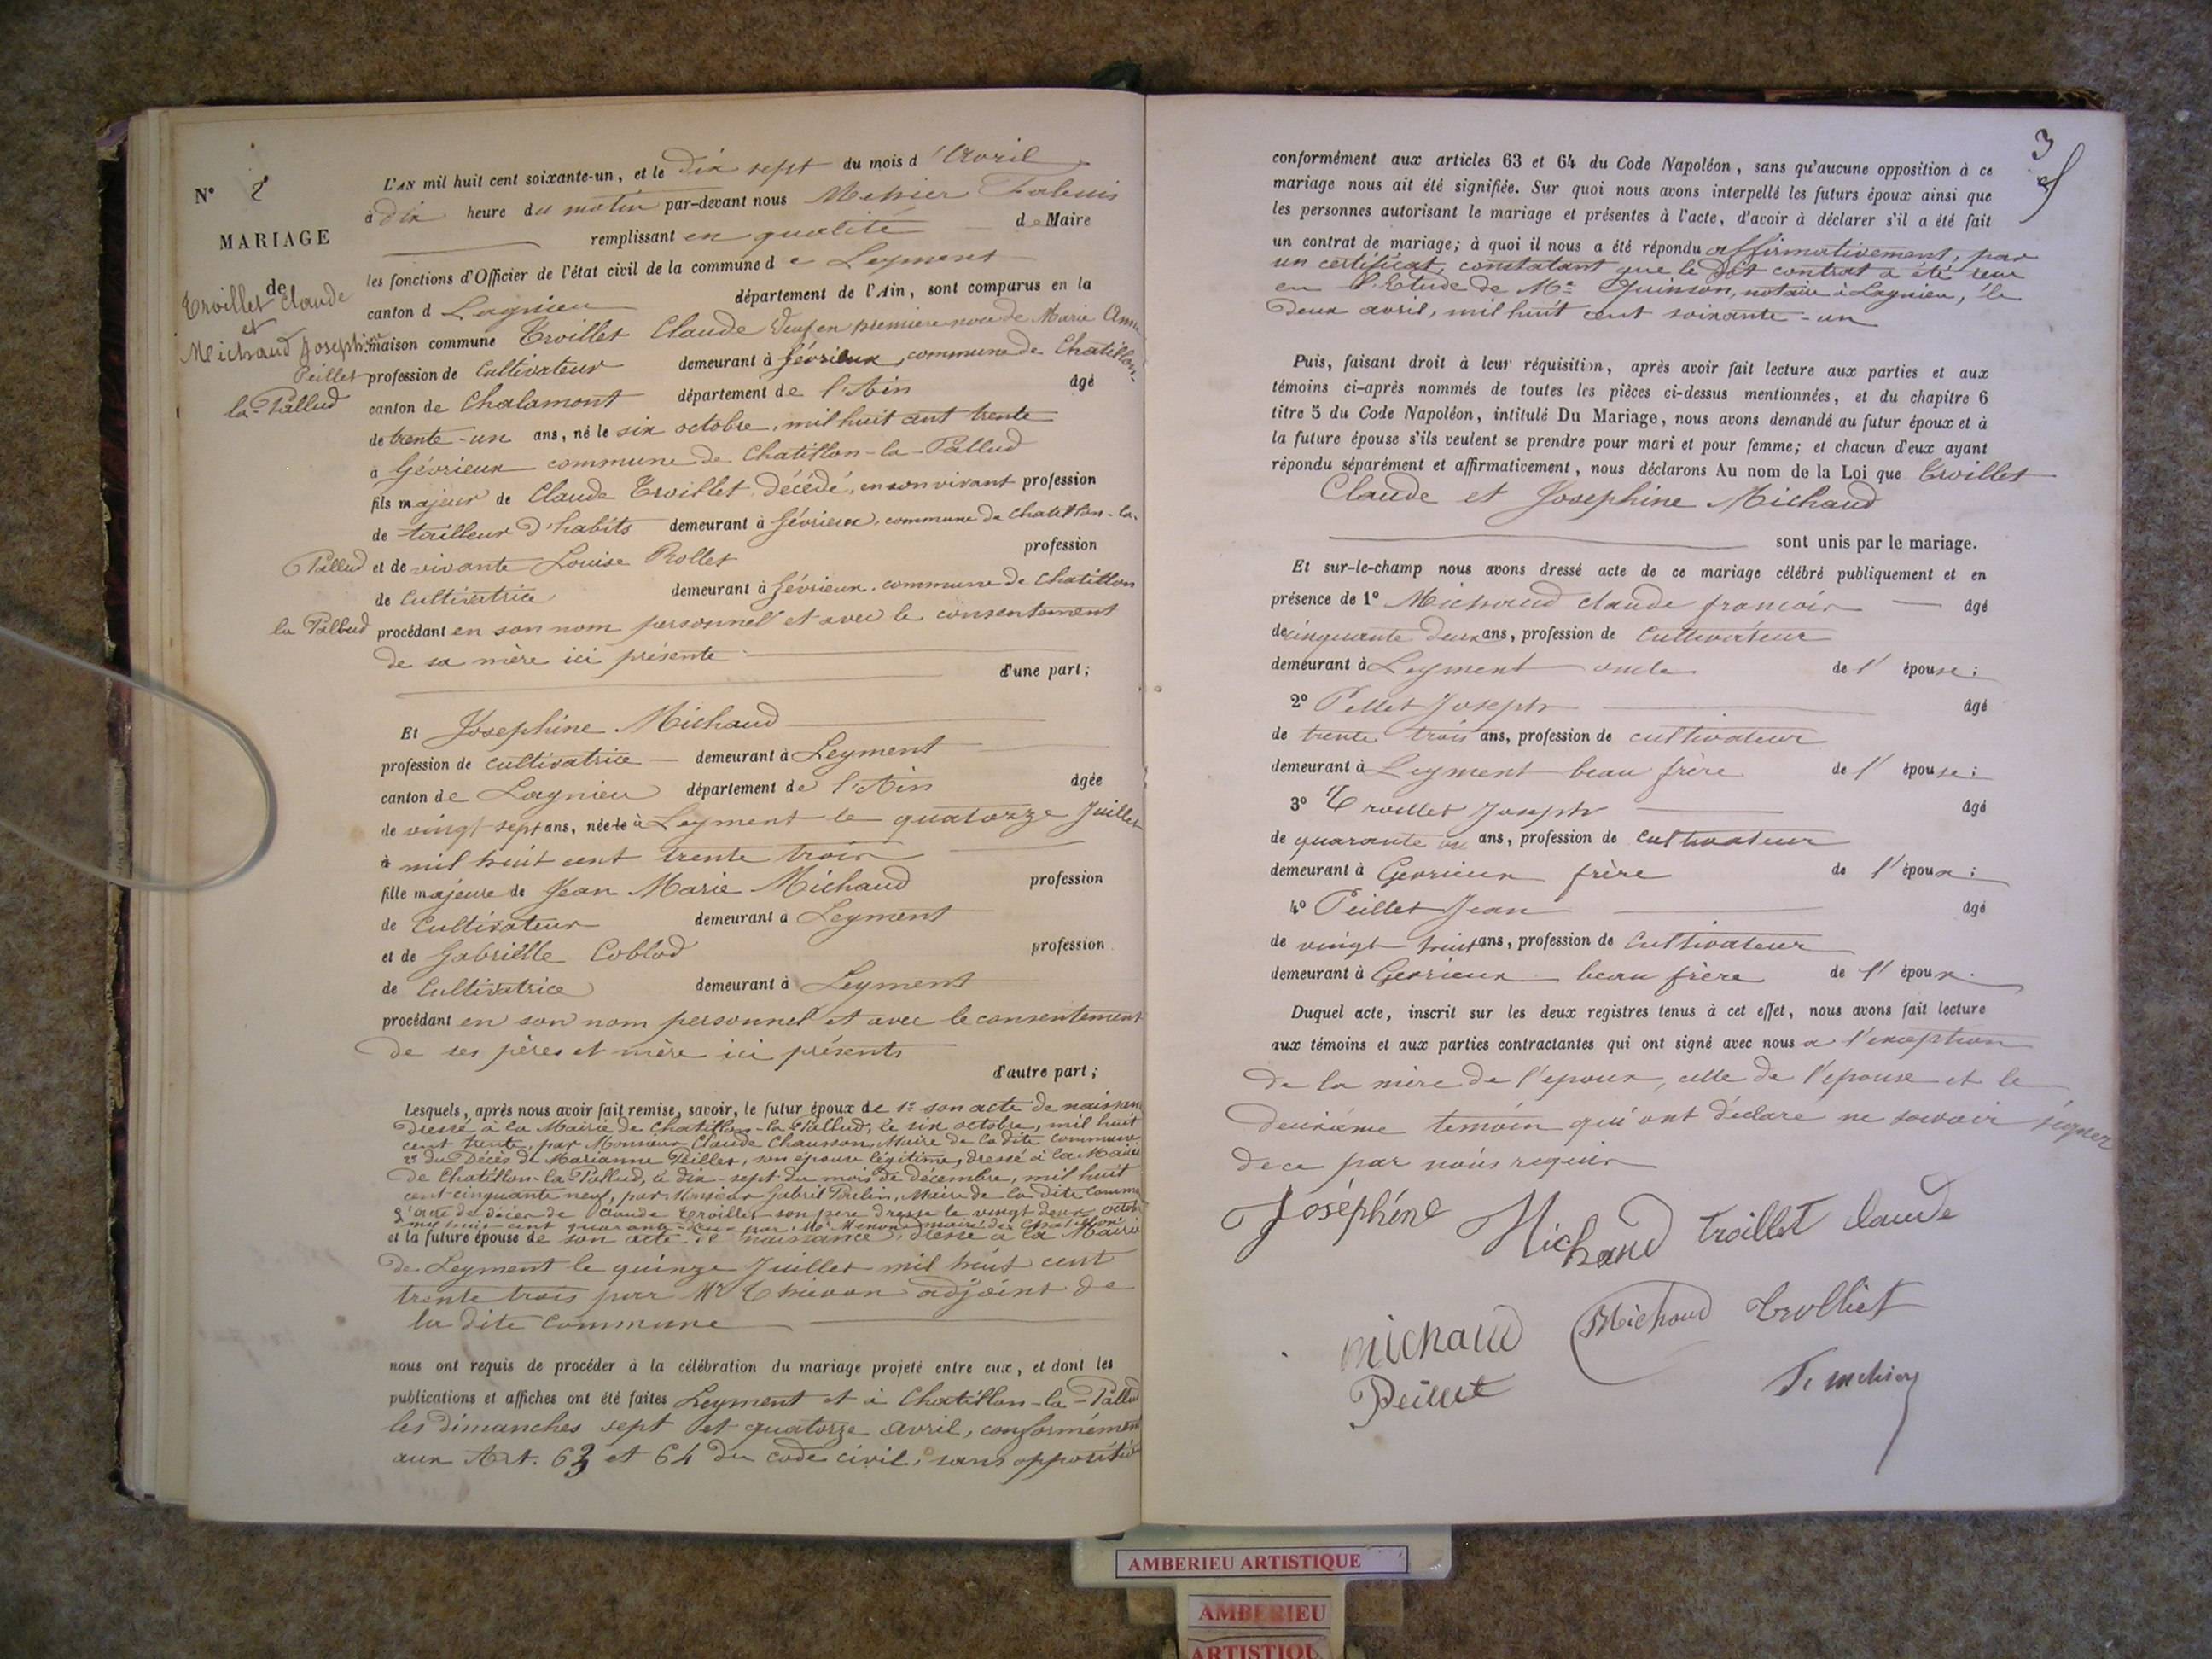 N° 2
MARIAGE
de
Troillet Claude
et
Michaud Josephine
L'AN mil huit cent soixante-un, et le dix sept du mois d'Avril
à dix heure du matin par-devant nous
remplissant en qualité de Maire
les fonctions d'Officier de l'état civil de la commune de Leyment
canton d Lagnieu département de l'Ain, sont comparus en la
maison commune Troillet Claude veuf en premiere noce de Marie Anne
Peillet profession de Cultivateur demeurant à Gévrieux, commune de Chatillon-
la-Pallud canton de Chalamont département de l'Ain âgé
de trente-un ans, né le six octobre, mil huit cent trente
à Gévrieux commune de Chatillon-la-Pallud
fils majeur de Claude Troillet décédé, en son vivant profession
de tailleur d'habits demeurant à Gévrieux, commune de Chatillon-la-
Pallud et de vivante Louise Rollet profession
de Cultivatrice demeurant à Gévrieux, commune de Chatillon
la Pallud procédant en son nom personnel et avec le consentement
de sa mère ici présente
d'une part;
Et Josephine Michaud
profession de cultivatrice demeurant à Leyment
canton de Lagnieu département de l'Ain âgée
de vingt sept ans, née le à Leyment le quatorze Juillet
à mil huit cent trente trois
fille majeure de Jean Marie Michaud profession
de Cultivateur demeurant à Leyment
et de Gabrielle Coblod profession
de Cultivatrice demeurant à Leyment
procédant en son nom personnel et avec le consentement
de ses pères et mère ici présents
d'autre part;
Lesquels, après nous avoir fait remise, savoir, le futur époux de 1° son acte de naissan
dressé à la Mairie de Chatillon-la-Pallud, le six octobre, mil huit
cent trente, par Monsieur Claude Chausson, Maire de la dite commune
2° du Décès de Marianne Peillet, son épouse légitime, dressé à la Mairie
de Chatillon-la-Pallud, le dix-sept du mois de décembre, mil huit
cent cinquante neuf, par Monsieur Gabriel Maire de la dite Comm
de décès de Claude Troillet son père dressé le vingt deux octob
mil huit cent quarante-deux par Mr maire de Chatillon
et la future épouse de son acte de naissance, dressé à la Mairie
de Leyment le quinze Juillet mil huit cent
trente trois par Mr adjoint de
la dite Commune
nous ont requis de procéder à la célébration du mariage projeté entre eux, et dont les
publications et affiches ont été faites Leyment et à Chatillon-la-Pallud
les dimanches sept et quatorze avril, conformément
aux Art. 63 et 64 du code civil, sans opposition
3
conformément aux articles 63 et 64 du Code Napoléon, sans qu'aucune opposition à ce
mariage nous ait été signifiée. Sur quoi nous avons interpellé les futurs époux ainsi que
les personnes autorisant le mariage et présentes à l'acte, d'avoir à déclarer s'il a été fait
un contrat de mariage; à quoi il nous a été répondu affirmativement, par
un certificat, constatant que le dit contrat a été reçu
en l'Etude de Me Quinson, notaire à Lagnieu, le
deux avril, mil huit cent soixante-un
Puis, faisant droit à leur réquisition, après avoir fait lecture aux parties et aux
témoins ci-après nommés de toutes les pièces ci-dessus mentionnées, et du chapitre 6
titre 5 du Code Napoléon, intitulé Du Mariage, nous avons demandé au futur époux et à
la future épouse s'ils veulent se prendre pour mari et pour femme; et chacun d'eux ayant
répondu séparément et affirmativement, nous déclarons Au nom de la Loi que Troillet
Claude et Josephine Michaud
sont unis par le mariage.
Et sur-le-champ nous avons dressé acte de ce mariage célébré publiquement et en
présence de 1° Michaud claude francois âgé
de cinquante deux ans, profession de Cultivateur
demeurant à Leyment oncle de l'épouse;
2° Pellet Joseph âgé
de trente trois ans, profession de cultivateur
demeurant à Leyment beau frère de l'épouse;
3° Troillet Joseph âgé
de quarante ans, profession de Cultivateur
demeurant à Gevrieux frère de l'époux;
4° Peillet Jean âgé
de vingt huit ans, profession de Cultivateur
demeurant à Gevrieux beau frère de l'époux.
Duquel acte, inscrit sur les deux registres tenus à cet effet, nous avons fait lecture
aux témoins et aux parties contractantes qui ont signé avec nous a l'exception
de la mère de l'epoux, celle de l'epouse et le
deuxième temoin qui ont déclaré ne savoir signer
de ce par nous requis
Joséphine Michaud troillet claude
michaud Michaud trolliet
Peillet
AMBERIEU ARTISTIQUE
AMBERIEU
ARTISTIQU